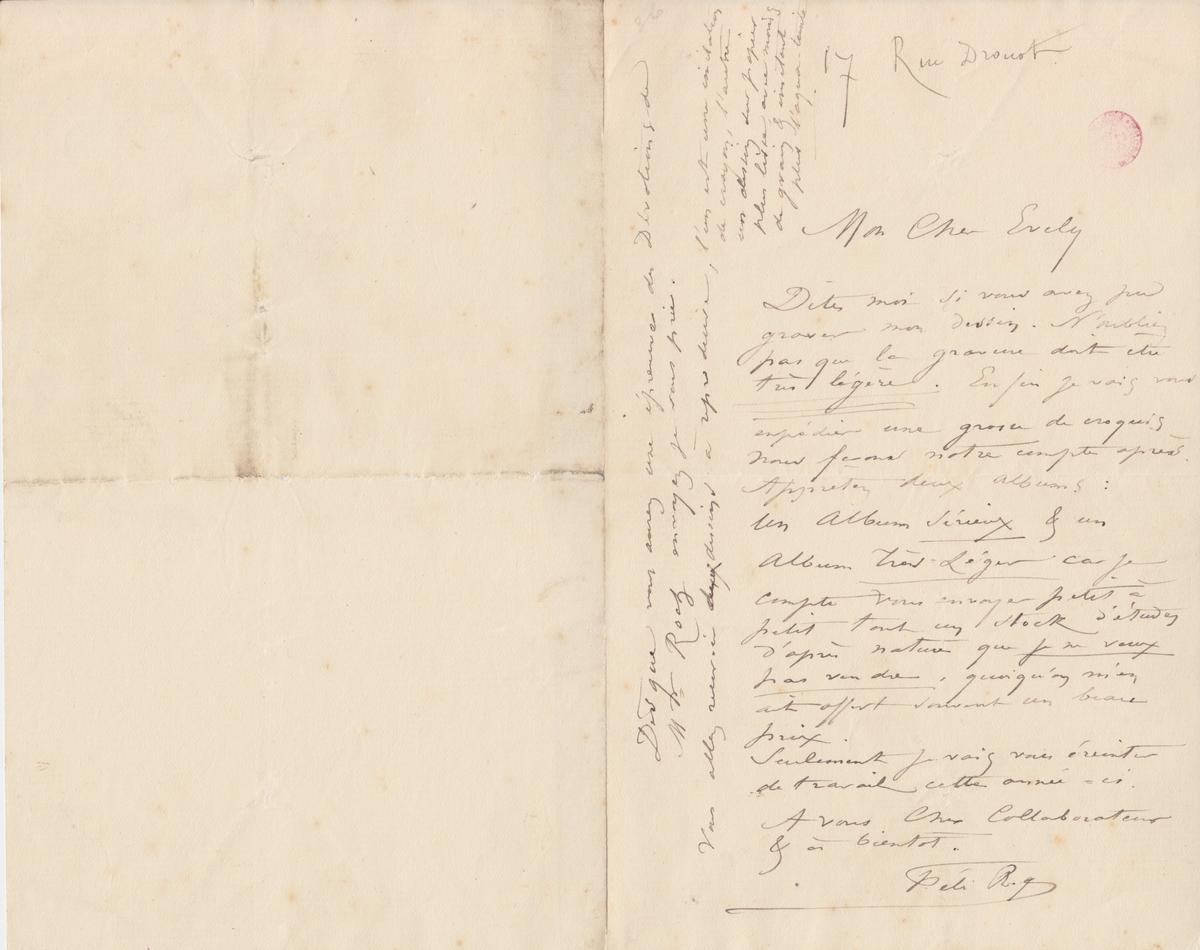 Rue Drouot
7
Mon Cher Evely
Dites moi si vous avez pu
graver mon dessin. N'oubliez
pas que la gravure doit être
très légère. Enfin je vais vous
expédier une grosse de croquis
nous ferons notre compte après.
Apprêtez deux albums :
Un Album Sérieux & un
Album Très-Léger car je
compte vous envoyer petit à
petit tout un stock d'études
d'après nature que je ne veux
pas vendre, quoiqu'on m'en
ait offert souvent un beau
prix.
Seulement je vais vous éreinter
de travail cette année-ci.
A vous Cher Collaborateur
& à bientot.
Féli R
Dès que vous aurez une épreuve des Dévotions de
Mr Roch envoyez je vous prie.
Vous allez recevoir deux dessins à reproduire, l'un est une imitation
de crayon, l'autre
un dessin sur papier
plus lisse avec moins
de grain & imitant
plus l'aqua-teinte